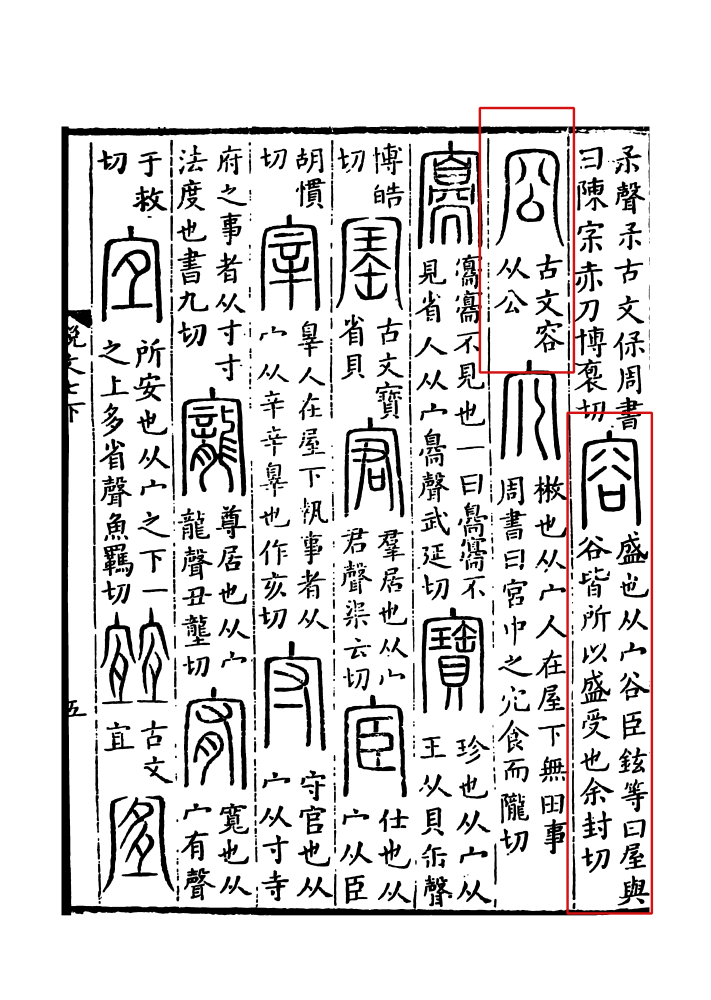 𣎼聲𣎼古文保周書
曰陳宲赤刀博褒切
容
盛也从宀谷臣鉉等曰屋與
谷皆所以盛受也余封切
㝐
古文容
从公
宂
㪔也从宀人在屋下無田事
周書曰宮中之宂食而隴切
㝰
㝰㝰不見也一曰㝰㝰不
見省人从宀𦤝聲武延切
寶
珍也从宀从
王从貝缶聲
博皓
切
古文寶
省貝
宭
羣居也从宀
君聲渠云切
宦
仕也从
宀从臣
胡慣
切
宰
辠人在屋下執事者从
宀从辛辛辠也作亥切
守
守官也从
宀从寸寺
府之事者从寸寸
法度也書九切
寵
尊居也从宀
龍聲丑壟切
宥
寬也从
宀有聲
于救
切
宜
所安也从宀之下一
之上多省聲魚羈切
古文
宜
說文七下
五